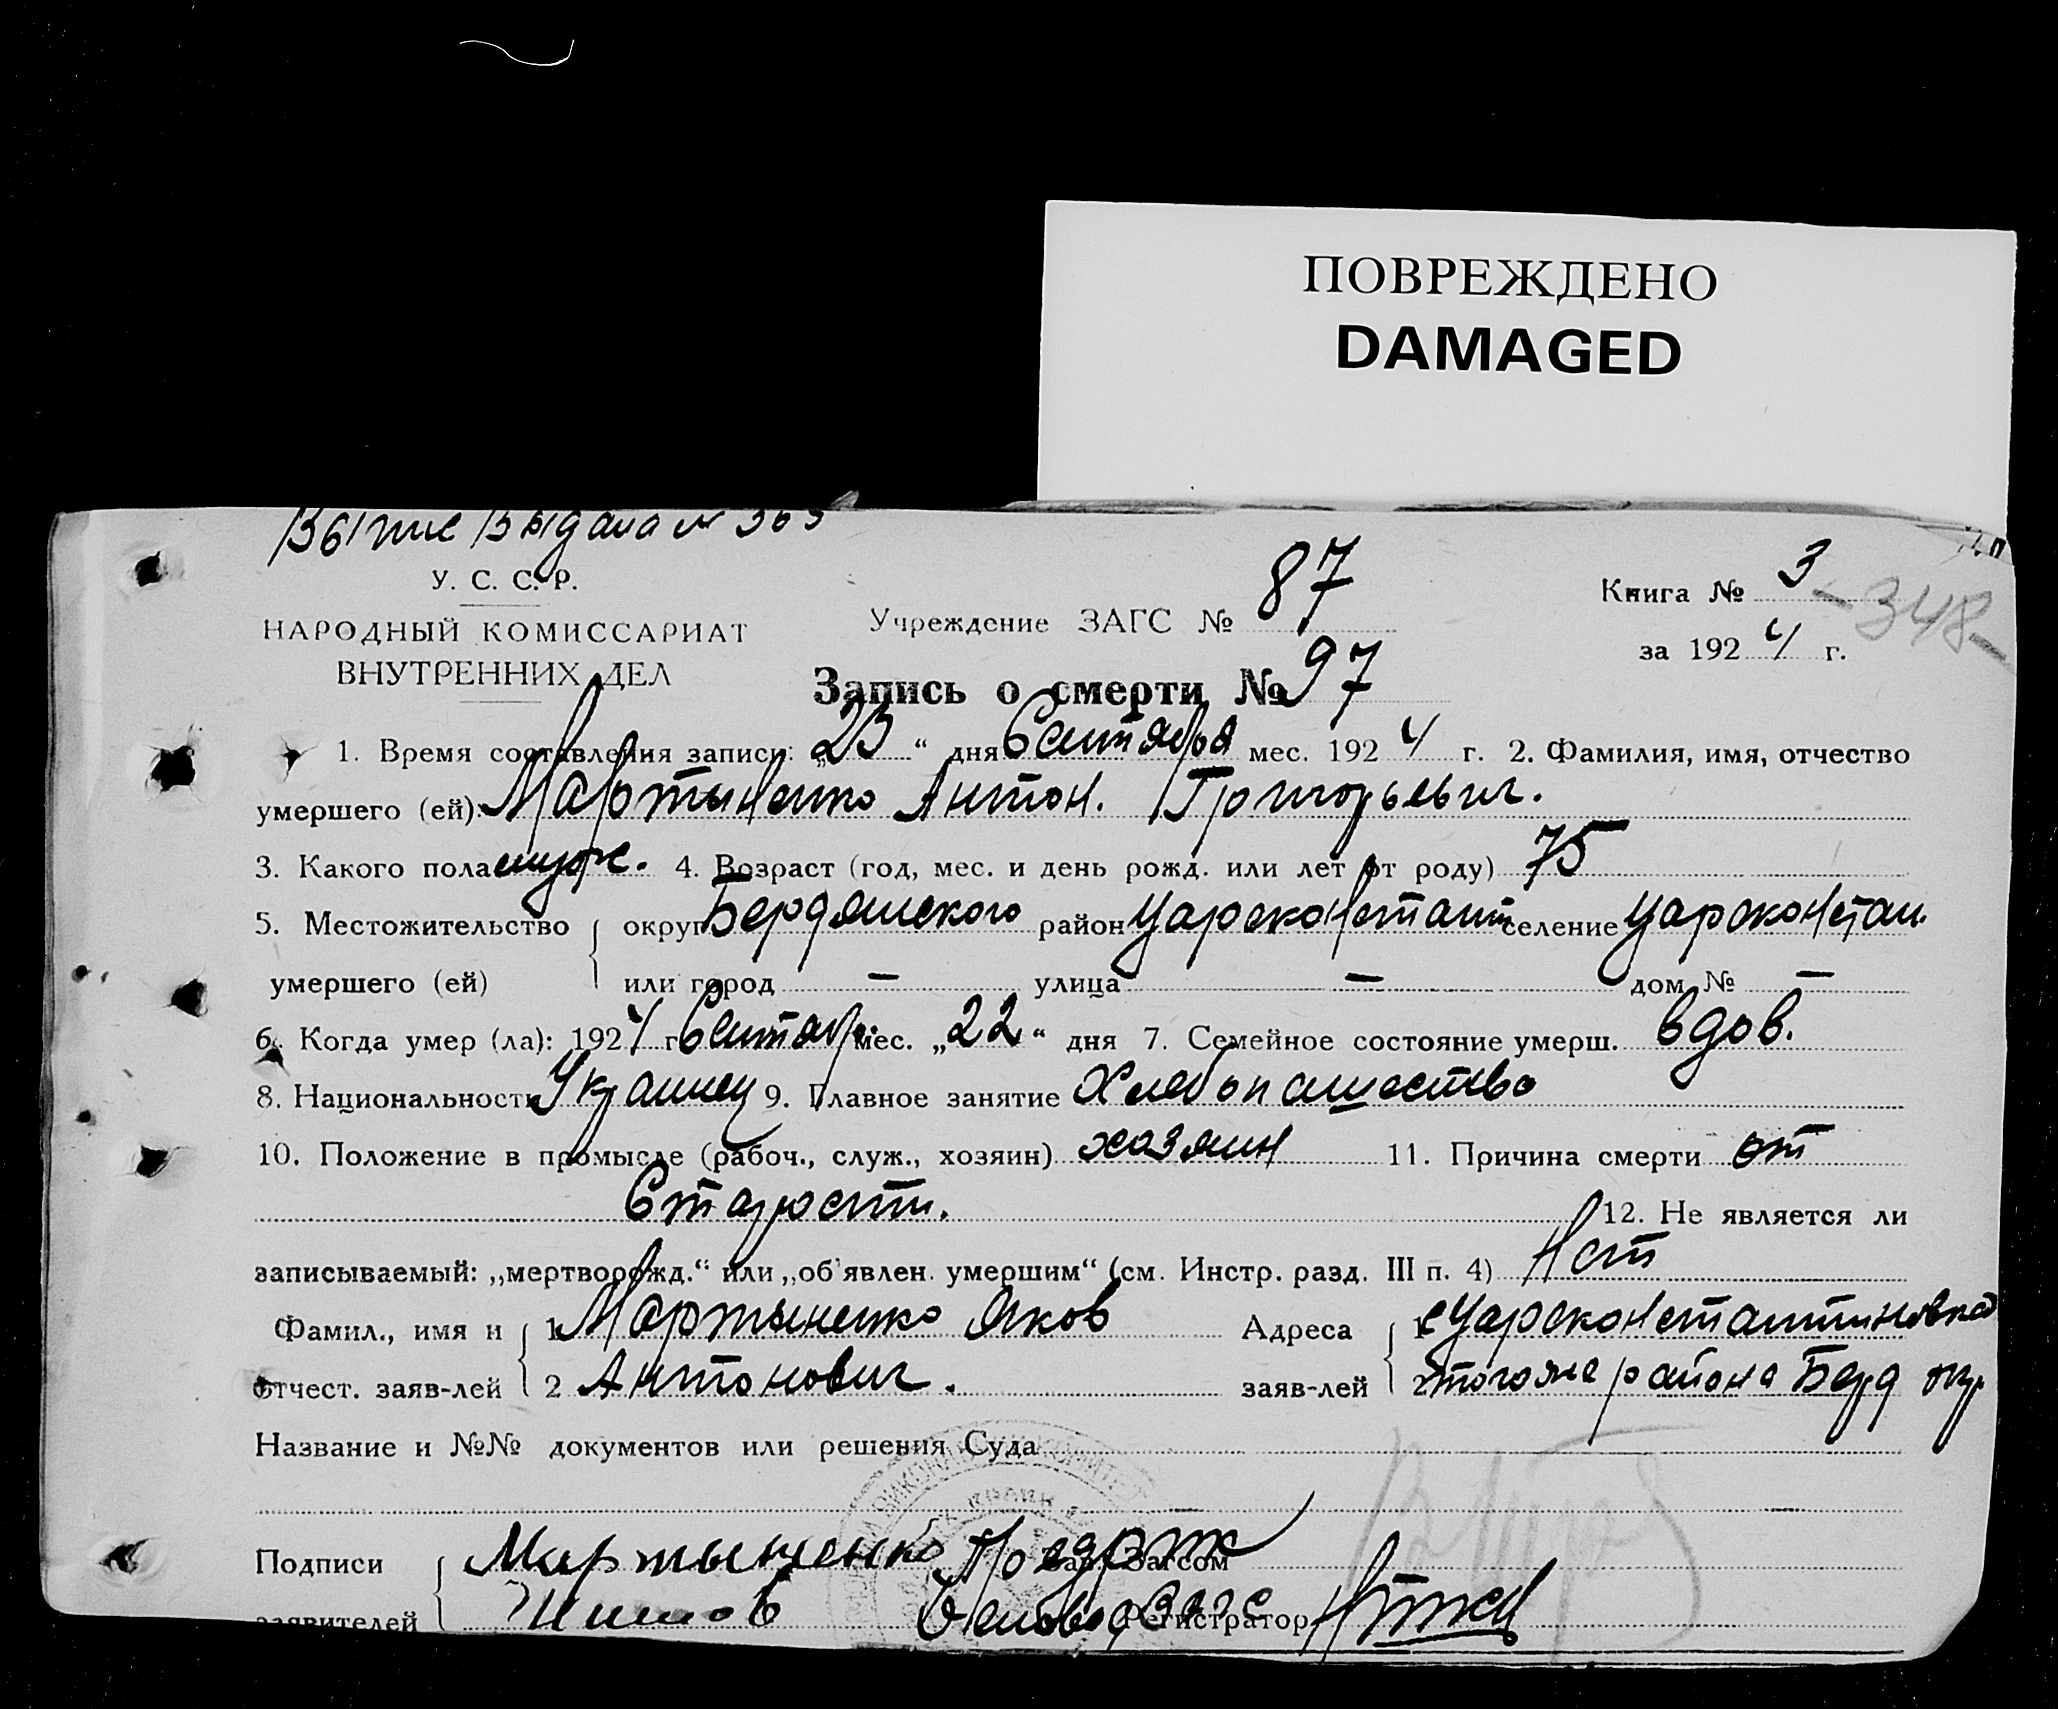 ПОВРЕЖДЕНО
DAMAGED
Выдана № 363
У. С. С. Р.
НАРОДНЫЙ КОМИССАРИАТ
ВНУТРЕННИХ ДЕЛ
Учреждение ЗАГС № 87
Книга № 3
- 348 -
за 1924 г.
Запись о смерти № 97
1. Время составления записи: „23“ дня Сентября мес. 1924 г. 2. Фамилия, имя, отчество
умершего (ей): Мартыненко Антон. Григорьевич.
3. Какого пола муж. 4. Возраст (год, мес. и день рожд. или лет от роду) 75
5. Местожительство округ Бердянского район Царсконстант селение Царсконстан.
умершего (ей) или город — улица — дом № —
6. Когда умер (ла): 1924 г Сентябр. мес. „22“ дня 7. Семейное состояние умерш. вдов.
8. Национальность Украинец 9. Главное занятие Хлебопашество
10. Положение в промысле (рабоч., служ., хозяин) хозяин 11. Причина смерти от
Старости. 12. Не является ли
записываемый: „мертворожд.“ или „об'явлен. умершим“ (см. Инстр. разд. III п. 4) Нет
Фамил., имя и 1 Мартыненко Яков Адреса 1 с Царсконстантиновка
отчест. заяв-лей 2 Антонович. заяв-лей 2 того же района Берд окр
Название и №№ документов или решения Суда
Подписи Мартыненко Зав. Загсом
заявителей Регистратор